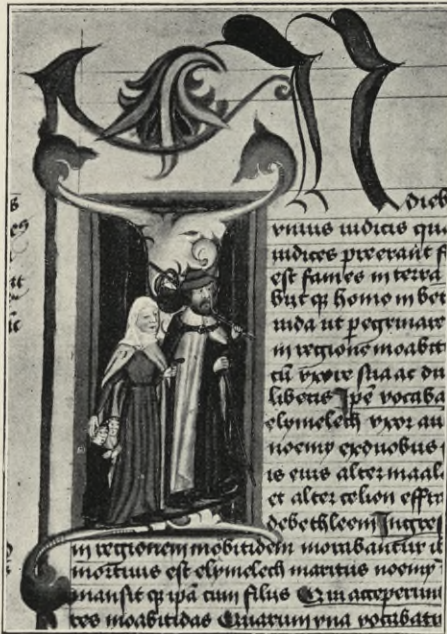 IN dieb
vnius iudicis qua
iudices preerant f
est fames in terra
biit q homo in bet
iuda ut peregrinare
in regione moabit
cū vxore sua ac du
liberis Ipē vocaba
elymelech vxor au
noemy ex duobus
is eius alter maal
et alter celion effra
de bethleem Ingres
in regionem mobitidem morabantur i
mortuus est elymelech maritus noemy
mansit q ipā cum filiis Qui acceperunt
res moabitidas Quarum vna vocabat